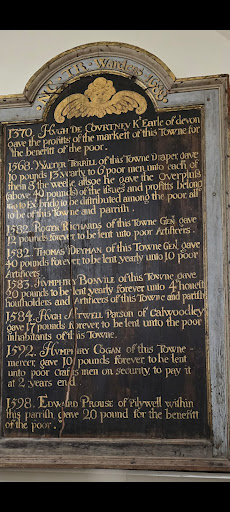 WC TR Wardens 1689
1370. HUGH DE COURTNEY K.t Earle of devon
gave the profitts of the markett of this Towne for
the benefitt of the poor.
1568. WALTER TYRRILL of this Towne Draper gave
10 pounds 13 yearly to 6 poor men unto each of
them 8 the weeke allsoe he gave the Overpluss
above 40 pounds of the issues and profitts belong
ing to Ex bridg to be distributed among the poor all
to be of this Towne and parrish.
1582. ROGER RICHARDS of this Towne Gen. gave
12 pounds forever to be lent unto poor Artificers.
1582. THOMAS DEYMAN of this Towne Gen. gave
40 pounds forever to be lent yearly unto 10 poor
Artificers.
1583. HUMPHRY BONVILE of this Towne gave
20 pounds to be lent yearly forever unto 4 honest
housholders and Artificers of this Towne and parrish
1584. HUGH ATWELL Parson of Calwoodley
gave 17 pounds forever, to be lent unto the poor
inhabitants of this Towne.
1592. HUMPHRY COGAN of this Towne
mercer gave 10 pounds forever to be lent
unto poor crafts men on security, to pay it
at 2 years end.
1598. EDWARD PROUSE of Pilywell within
this parrish gave 20 pound for the benefitt
of the poor.